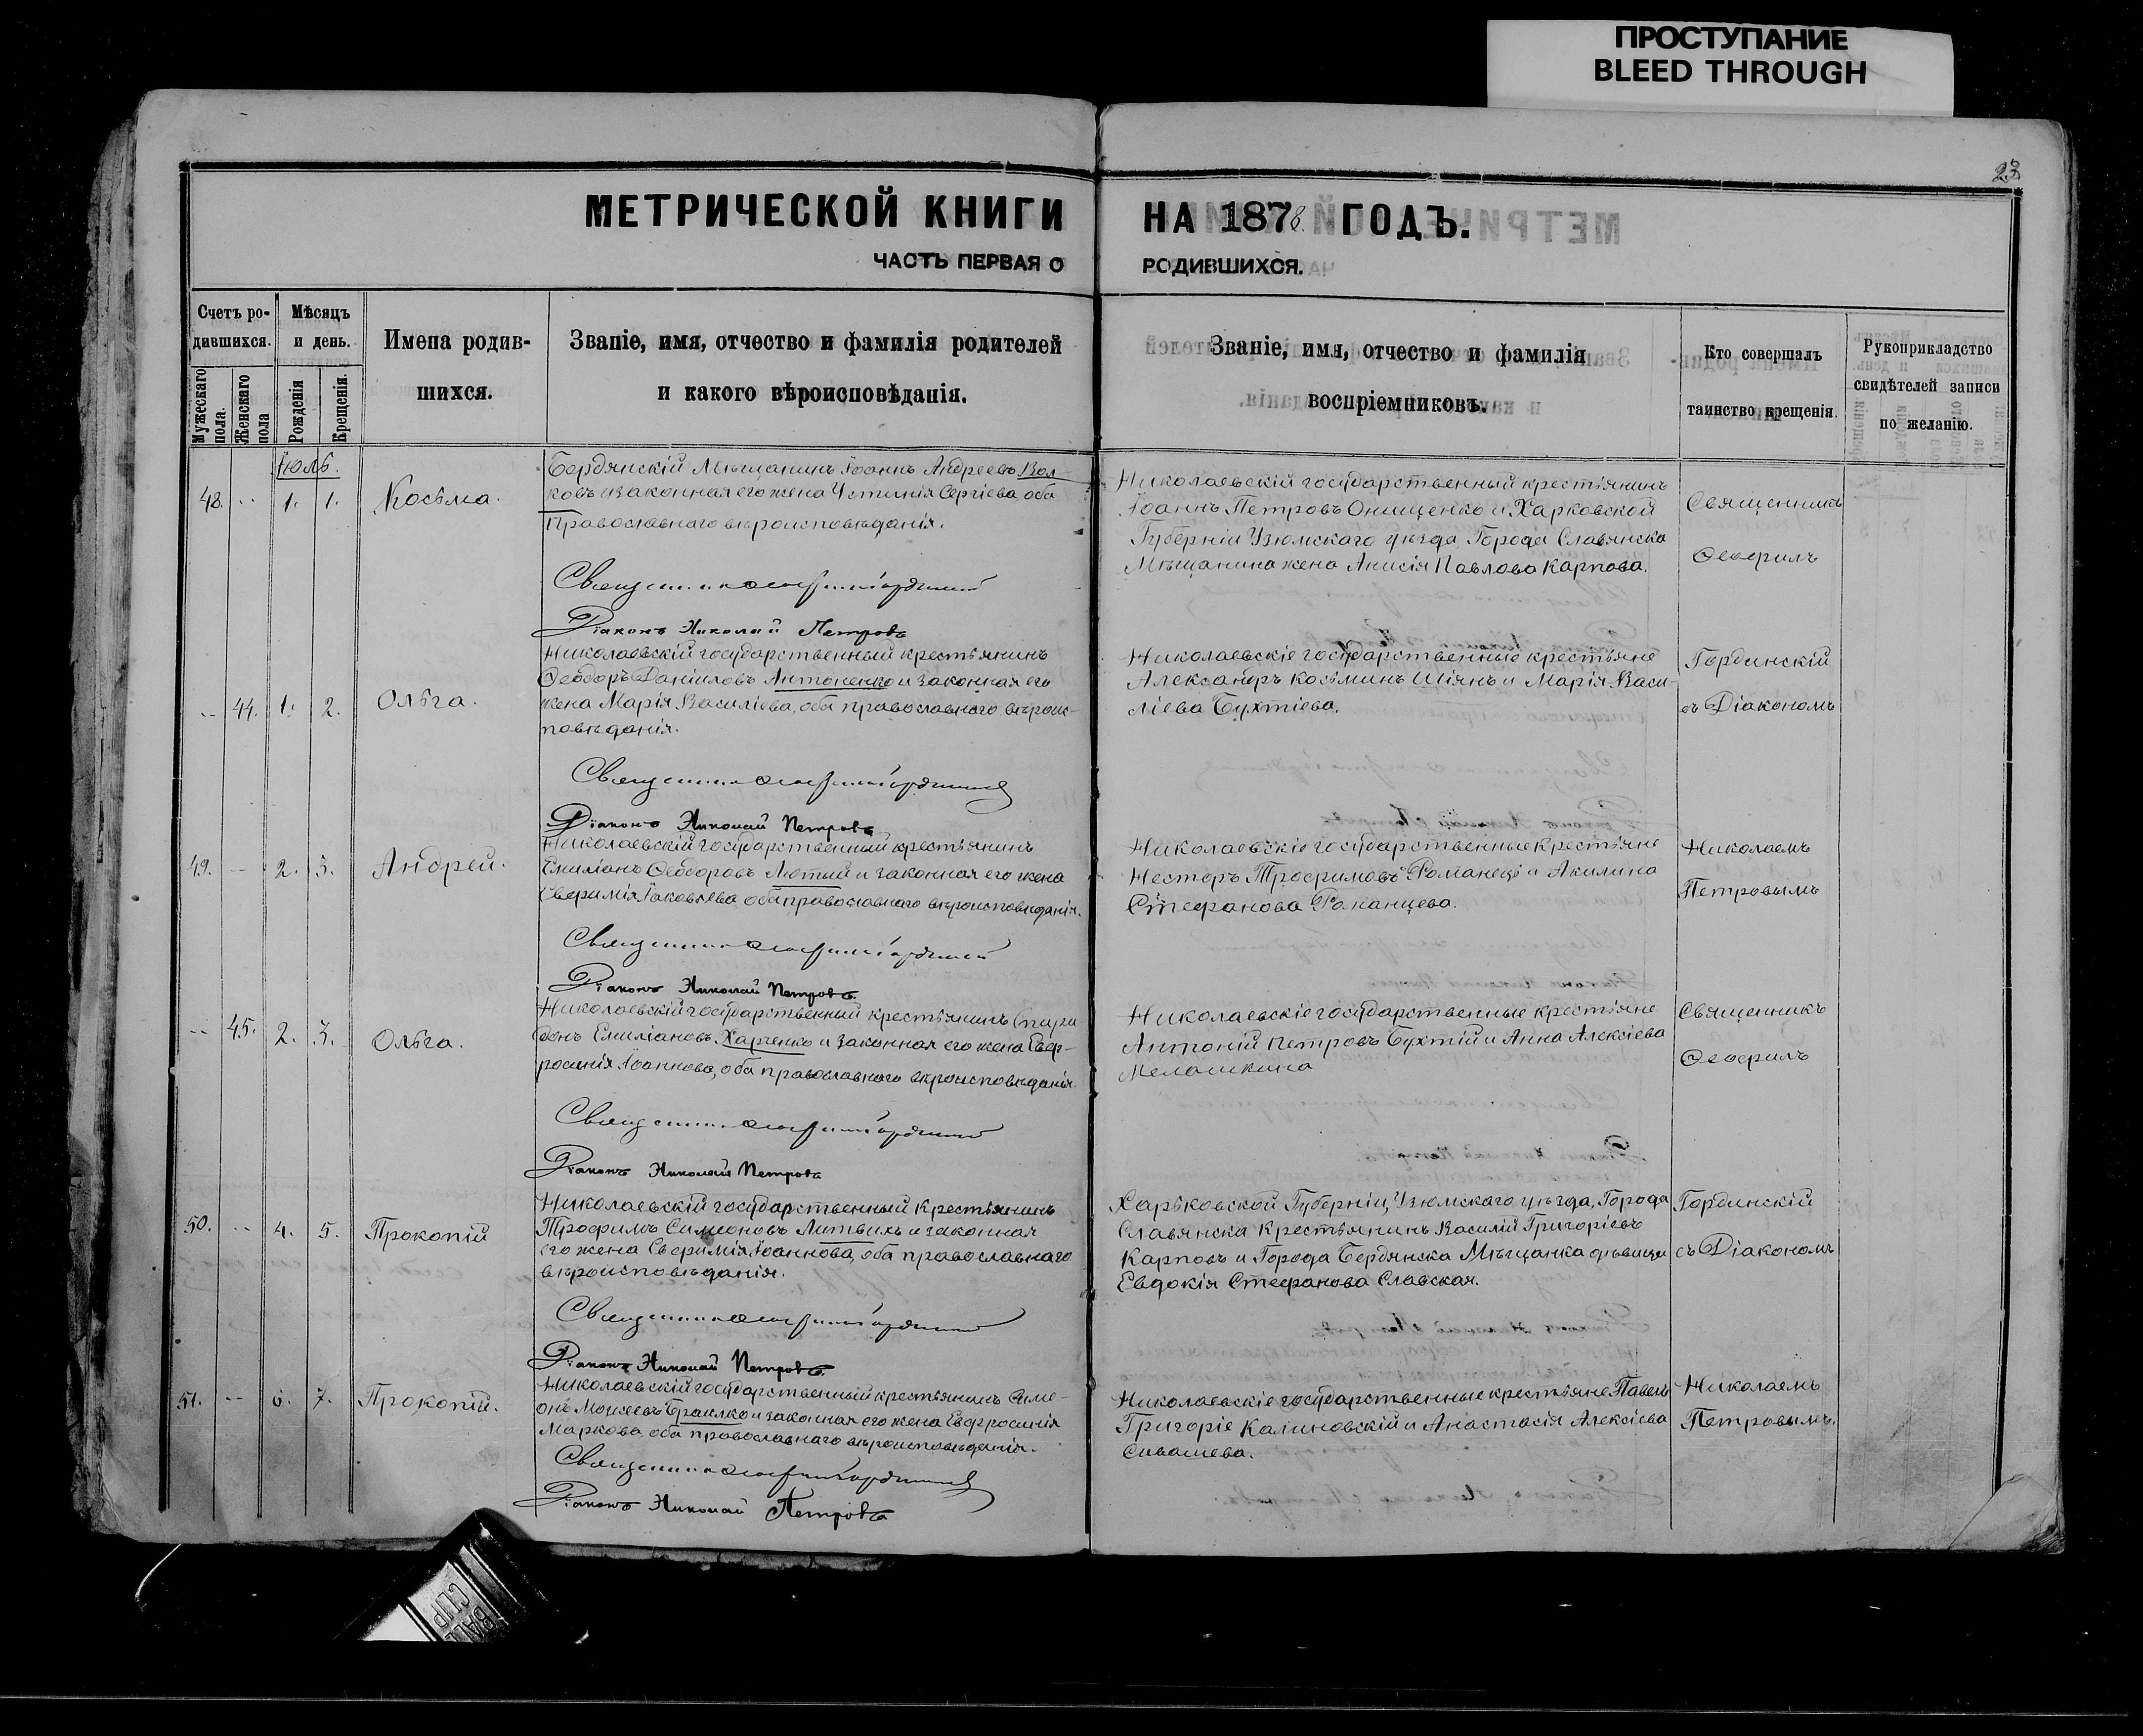 ПРОСТУПАНИЕ
BLEED THROUGH
23.
МЕТРИЧЕСКОЙ КНИГИ НА 1878. ГОДЪ.
ЧАСТЬ ПЕРВАЯ О РОДИВШИХСЯ.
Счетъ родившихся.
Мужескаго пола.
Женскаго пола
Мѣсяцъ и день.
Рожденія
Крещенія.
Имена родив-
шихся.
Званіе, имя, отчество и фамилія родителей
и какого вѣроисповѣданія.
Званіе, имя, отчество и фамилія
воспріемниковъ.
Кто совершалъ
таинство крещенія.
Рукоприкладство
свидѣтелей записи
по желанію.
Іюль.
48. 1. 1. Косьма.
Бердянскій Мѣщанинъ Іоаннъ Андреевъ Вол-
ковъ и законная его жена Устинія Сергіева, оба
Православнаго вѣроисповѣданія.
Діаконъ Николай Петровъ
Николаевскій государственный крестьянинъ
Іоаннъ Петровъ Онищенко и Харковской
Губерніи Изюмскаго уѣзда, Города Славянска
Мѣщанина жена Анисія Павлова Карпова.
Священникъ
44. 1. 2. Ольга.
Николаевскій государственный крестьянинъ
Ѳеодоръ Даніиловъ Антоненко и законная его
жена Марія Василіева, оба православнаго вѣроис-
повѣданія.
Діаконъ Николай Петровъ
Николаевскіе государственные крестьяне
Александръ Косьминъ Шіянъ и Марія Васи-
ліева Бухтіева.
Гординскій
съ Діакономъ
49. 2. 3. Андрей.
Николаевскій государственный крестьянинъ
Емиліанъ Ѳеодоровъ Лютий и законная его жена
Евфимія Іаковлева оба православнаго вѣроисповѣданія.
Діаконъ Николай Петровъ
Николаевскіе государственные крестьяне
Несторъ Трофимовъ Романецъ и Акилина
Стефанова Романцева.
Николаемъ
Петровымъ
45. 2. 3. Ольга.
Николаевскій государственный крестьянинъ Спири
донъ Емиліановъ Харченко и законная его жена Евф-
росинія Іоаннова, оба православнаго вѣроисповѣданія.
Діаконъ Николай Петровъ
Николаевскіе государственные крестьяне
Антоній Петровъ Бухтій и Анна Алексіева
Мелашкина
Священникъ
50. 4. 5. Прокопій
Николаевскій государственный крестьянинъ
Трофимъ Симеоновъ Литвинъ и законная
его жена Евфимія Іоаннова, оба православнаго
вѣроисповѣданія.
Діаконъ Николай Петровъ
Харьковской Губерніи, Изюмскаго уѣзда, Города
Славянска Крестьянинъ Василій Григоріевъ
Карповъ и Города Бердянска Мѣщанка дѣвица
Евдокія Стефанова Славская.
Гординскій
съ Діакономъ
51. 6. 7. Прокопій.
Николаевскій государственный крестьянинъ Симе-
онъ Моисеевъ Браилко и законная его жена Евфросинія
Маркова оба православнаго вѣроисповѣданія.
Діаконъ Николай Петровъ
Николаевскіе государственные крестьяне Павелъ
Григоріе Калиновскій и Анастасія Алексіева
Сивашева.
Николаемъ
Петровымъ.